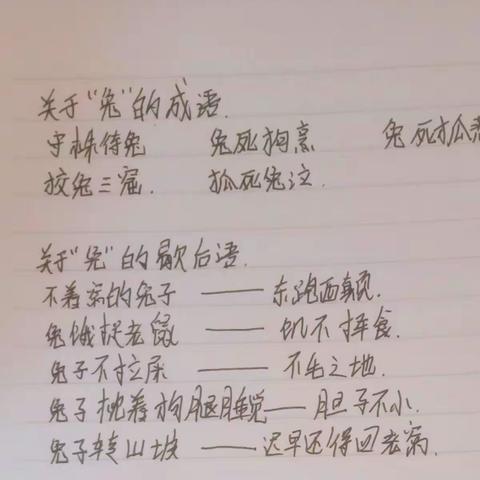 关于"兔"的成语.
守株待兔 兔死狗烹 兔死狐悲
狡兔三窟. 狐死兔泣.
关于"兔"的歇后语.
不着窝的兔子 —— 东跑西颠.
兔饿捉老鼠 —— 饥不择食.
兔子不拉屎 —— 不毛之地.
兔子挑着狗腿睡觉 —— 胆子不小.
兔子转山坡 —— 迟早还得回老窝.